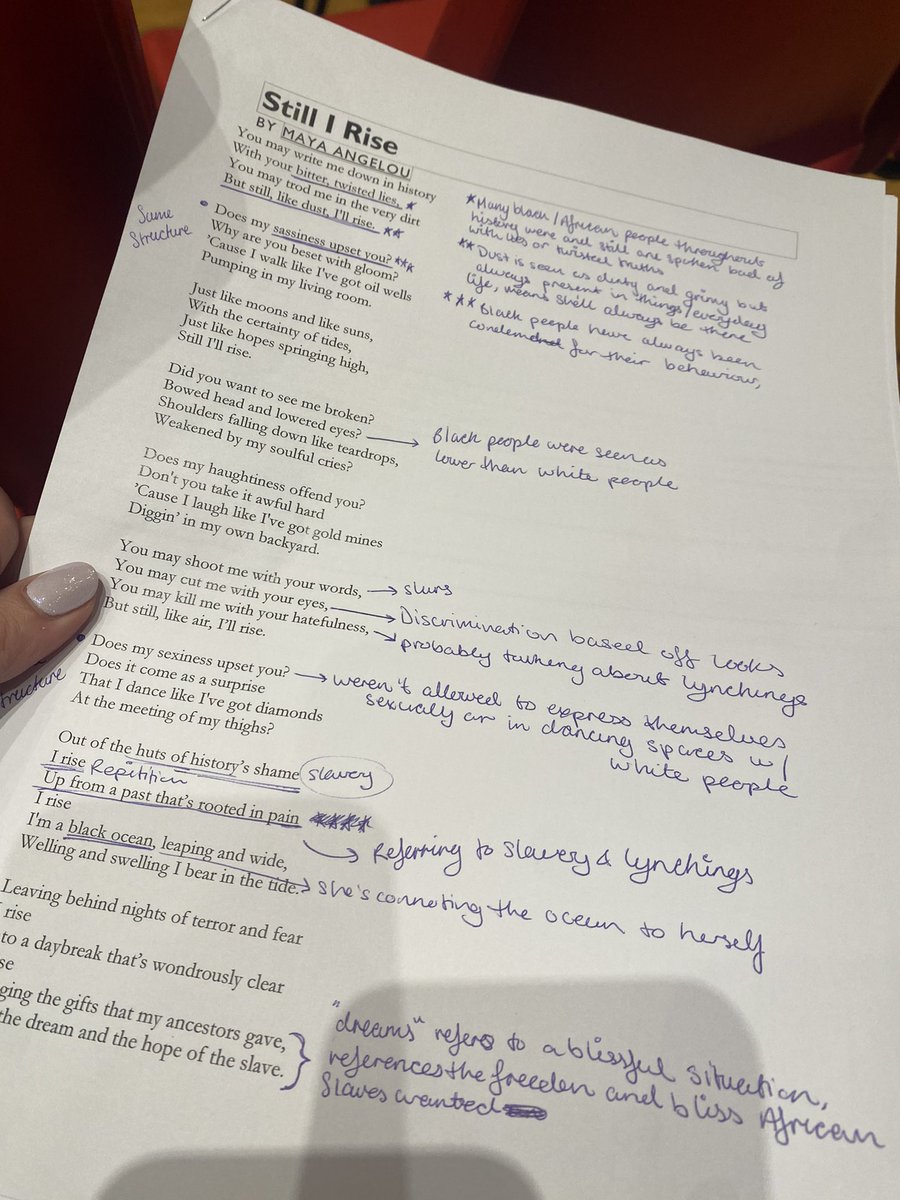 Still I Rise
BY MAYA ANGELOU
You may write me down in history
With your bitter, twisted lies, *
You may trod me in the very dirt
But still, like dust, I'll rise. **
* Many black / African people throughout
history were and still are spoken bad of
with lies or twisted truths
** Dust is seen as dirty and grimy but
always present in things/everyday
life, means she'll always be there
*** Black people have always been
condemned for their behaviour,
Same
Structure
Does my sassiness upset you? ***
Why are you beset with gloom?
'Cause I walk like I've got oil wells
Pumping in my living room.
Just like moons and like suns,
With the certainty of tides,
Just like hopes springing high,
Still I'll rise.
Did you want to see me broken?
Bowed head and lowered eyes?
Shoulders falling down like teardrops,
Weakened by my soulful cries?
Black people were seen as
lower than white people
Does my haughtiness offend you?
Don't you take it awful hard
'Cause I laugh like I've got gold mines
Diggin' in my own backyard.
You may shoot me with your words, → slurs
You may cut me with your eyes, → Discrimination based off looks
You may kill me with your hatefulness, → probably talking about lynchings
But still, like air, I'll rise.
structure
Does my sexiness upset you? → weren't allowed to express themselves
sexually or in dancing spaces w/
white people
Does it come as a surprise
That I dance like I've got diamonds
At the meeting of my thighs?
Out of the huts of history's shame slavery
I rise Repitition
Up from a past that's rooted in pain
I rise
→ Referring to slavery & lynchings
I'm a black ocean, leaping and wide,
Welling and swelling I bear in the tide. → She's conneting the ocean to herself
Leaving behind nights of terror and fear
rise
to a daybreak that's wondrously clear
se
ging the gifts that my ancestors gave,
the dream and the hope of the slave.
"dreams" refers to a blissful situation,
references the freeden and bliss African
Slaves wanted